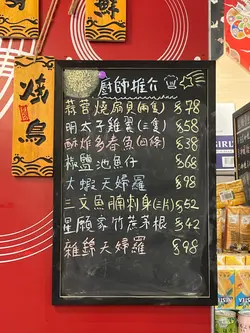 廚師推介
蒜蓉燒扇貝(兩隻) $78
明太子雞翼(三隻) $58
酥炸多春魚(四條) $38
椒鹽池魚仔 $68
大蝦天婦羅 $98
三文魚腩刺身(三片) $52
星願家竹蔗茅根 $42
雜錦天婦羅 $98
燒鳥